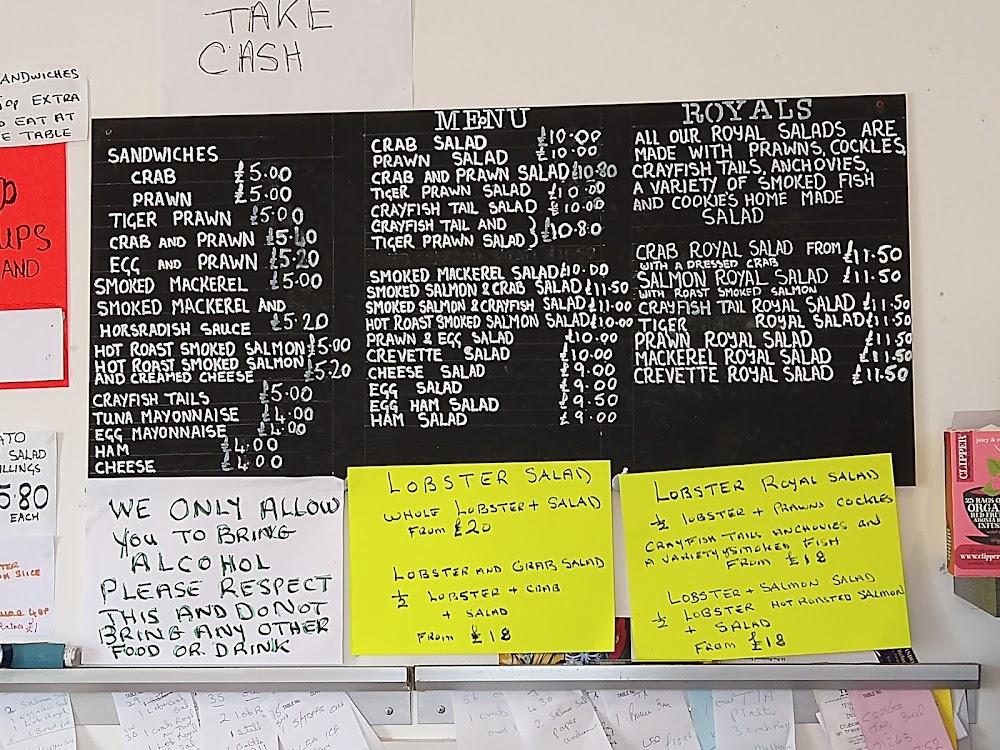 TAKE
CASH
SANDWICHES
EXTRA
EAT AT
TABLE
UPS
AND
SALAD
FILLINGS
5.80
EACH
SLICE
SANDWICHES
CRAB £5.00
PRAWN £5.00
TIGER PRAWN £5.00
CRAB AND PRAWN £5.40
EGG AND PRAWN £5.20
SMOKED MACKEREL £5.00
SMOKED MACKEREL AND
HORSRADISH SAUCE £5.20
HOT ROAST SMOKED SALMON £5.00
HOT ROAST SMOKED SALMON
AND CREAMED CHEESE £5.20
CRAYFISH TAILS £5.00
TUNA MAYONNAISE £4.00
EGG MAYONNAISE £4.00
HAM £4.00
CHEESE £4.00
MENU
CRAB SALAD £10.00
PRAWN SALAD £10.00
CRAB AND PRAWN SALAD £10.80
TIGER PRAWN SALAD £10.00
CRAYFISH TAIL SALAD £10.00
CRAYFISH TAIL AND
TIGER PRAWN SALAD } £10.80
SMOKED MACKEREL SALAD £10.00
SMOKED SALMON & CRAB SALAD £11.50
SMOKED SALMON & CRAYFISH SALAD £11.00
HOT ROAST SMOKED SALMON SALAD £10.00
PRAWN & EGG SALAD £10.00
CREVETTE SALAD £10.00
CHEESE SALAD £9.00
EGG SALAD £9.00
EGG HAM SALAD £9.50
HAM SALAD £9.00
ROYALS
ALL OUR ROYAL SALADS ARE
MADE WITH PRAWNS, COCKLES,
CRAYFISH TAILS, ANCHOVIES,
A VARIETY OF SMOKED FISH
AND COOKIES HOME MADE
SALAD
CRAB ROYAL SALAD FROM £11.50
WITH A DRESSED CRAB
SALMON ROYAL SALAD £11.50
WITH ROAST SMOKED SALMON
CRAYFISH TAIL ROYAL SALAD £11.50
TIGER ROYAL SALAD £11.50
PRAWN ROYAL SALAD £11.50
MACKEREL ROYAL SALAD £11.50
CREVETTE ROYAL SALAD £11.50
WE ONLY ALLOW
YOU TO BRING
ALCOHOL
PLEASE RESPECT
THIS AND DO NOT
BRING ANY OTHER
FOOD OR DRINK
LOBSTER SALAD
WHOLE LOBSTER + SALAD
FROM £20
LOBSTER AND CRAB SALAD
½ LOBSTER + CRAB
+ SALAD
FROM £18
LOBSTER ROYAL SALAD
½ LOBSTER + PRAWNS COCKLES
CRAYFISH TAILS ANCHOVIES and
A VARIETY of SMOKED FISH
FROM £18
LOBSTER + SALMON SALAD
½ LOBSTER HOT ROASTED SALMON
+ SALAD
FROM £18
CLIPPER
25 BAGS
ORGANIC
www.clipper